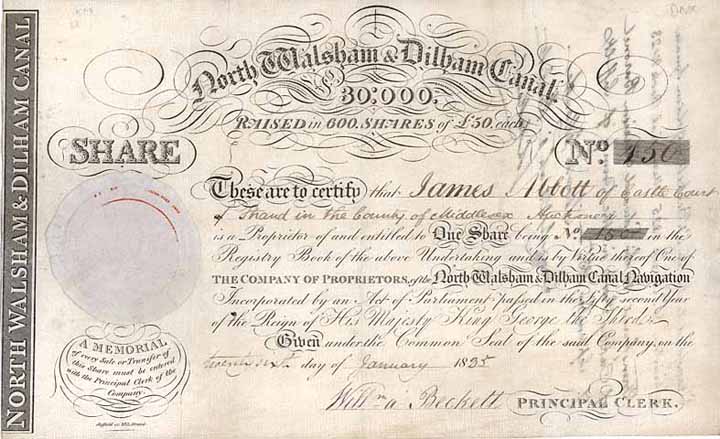 NORTH WALSHAM & DILHAM CANAL
North Walsham & Dilham Canal.
£30,000.
RAISED in 600 SHARES of £50 each
SHARE
No. 150
These are to certify that James Abbott of Castle Court
Strand in the County of Middlesex Auctioneer
is a Proprietor of and entitled to One Share being No. 150 in the
Registry Book of the above Undertaking and is by Virtue thereof One of
THE COMPANY OF PROPRIETORS, of the North Walsham & Dilham Canal Navigation
Incorporated by an Act of Parliament passed in the Fifty second Year
of the Reign of His Majesty King George the Third.
Given under the Common Seal of the said Company, on the
twenty sixth day of January 1825
A MEMORIAL
of every Sale or Transfer of
this Share must be entered
with the Principal Clerk of the
Company.
Willm a' Beckett PRINCIPAL CLERK.